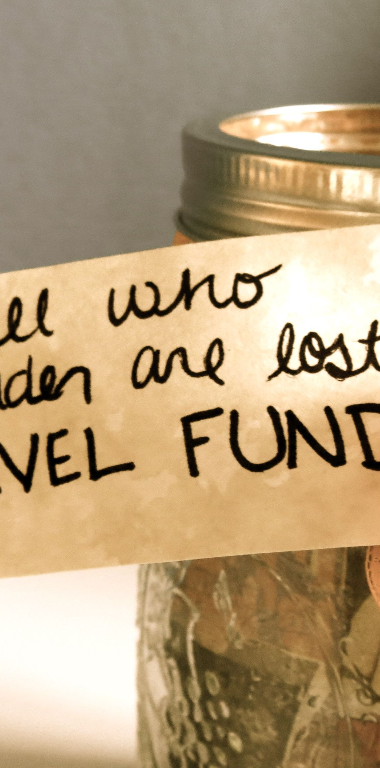 ll who
nder are lost
VEL FUND